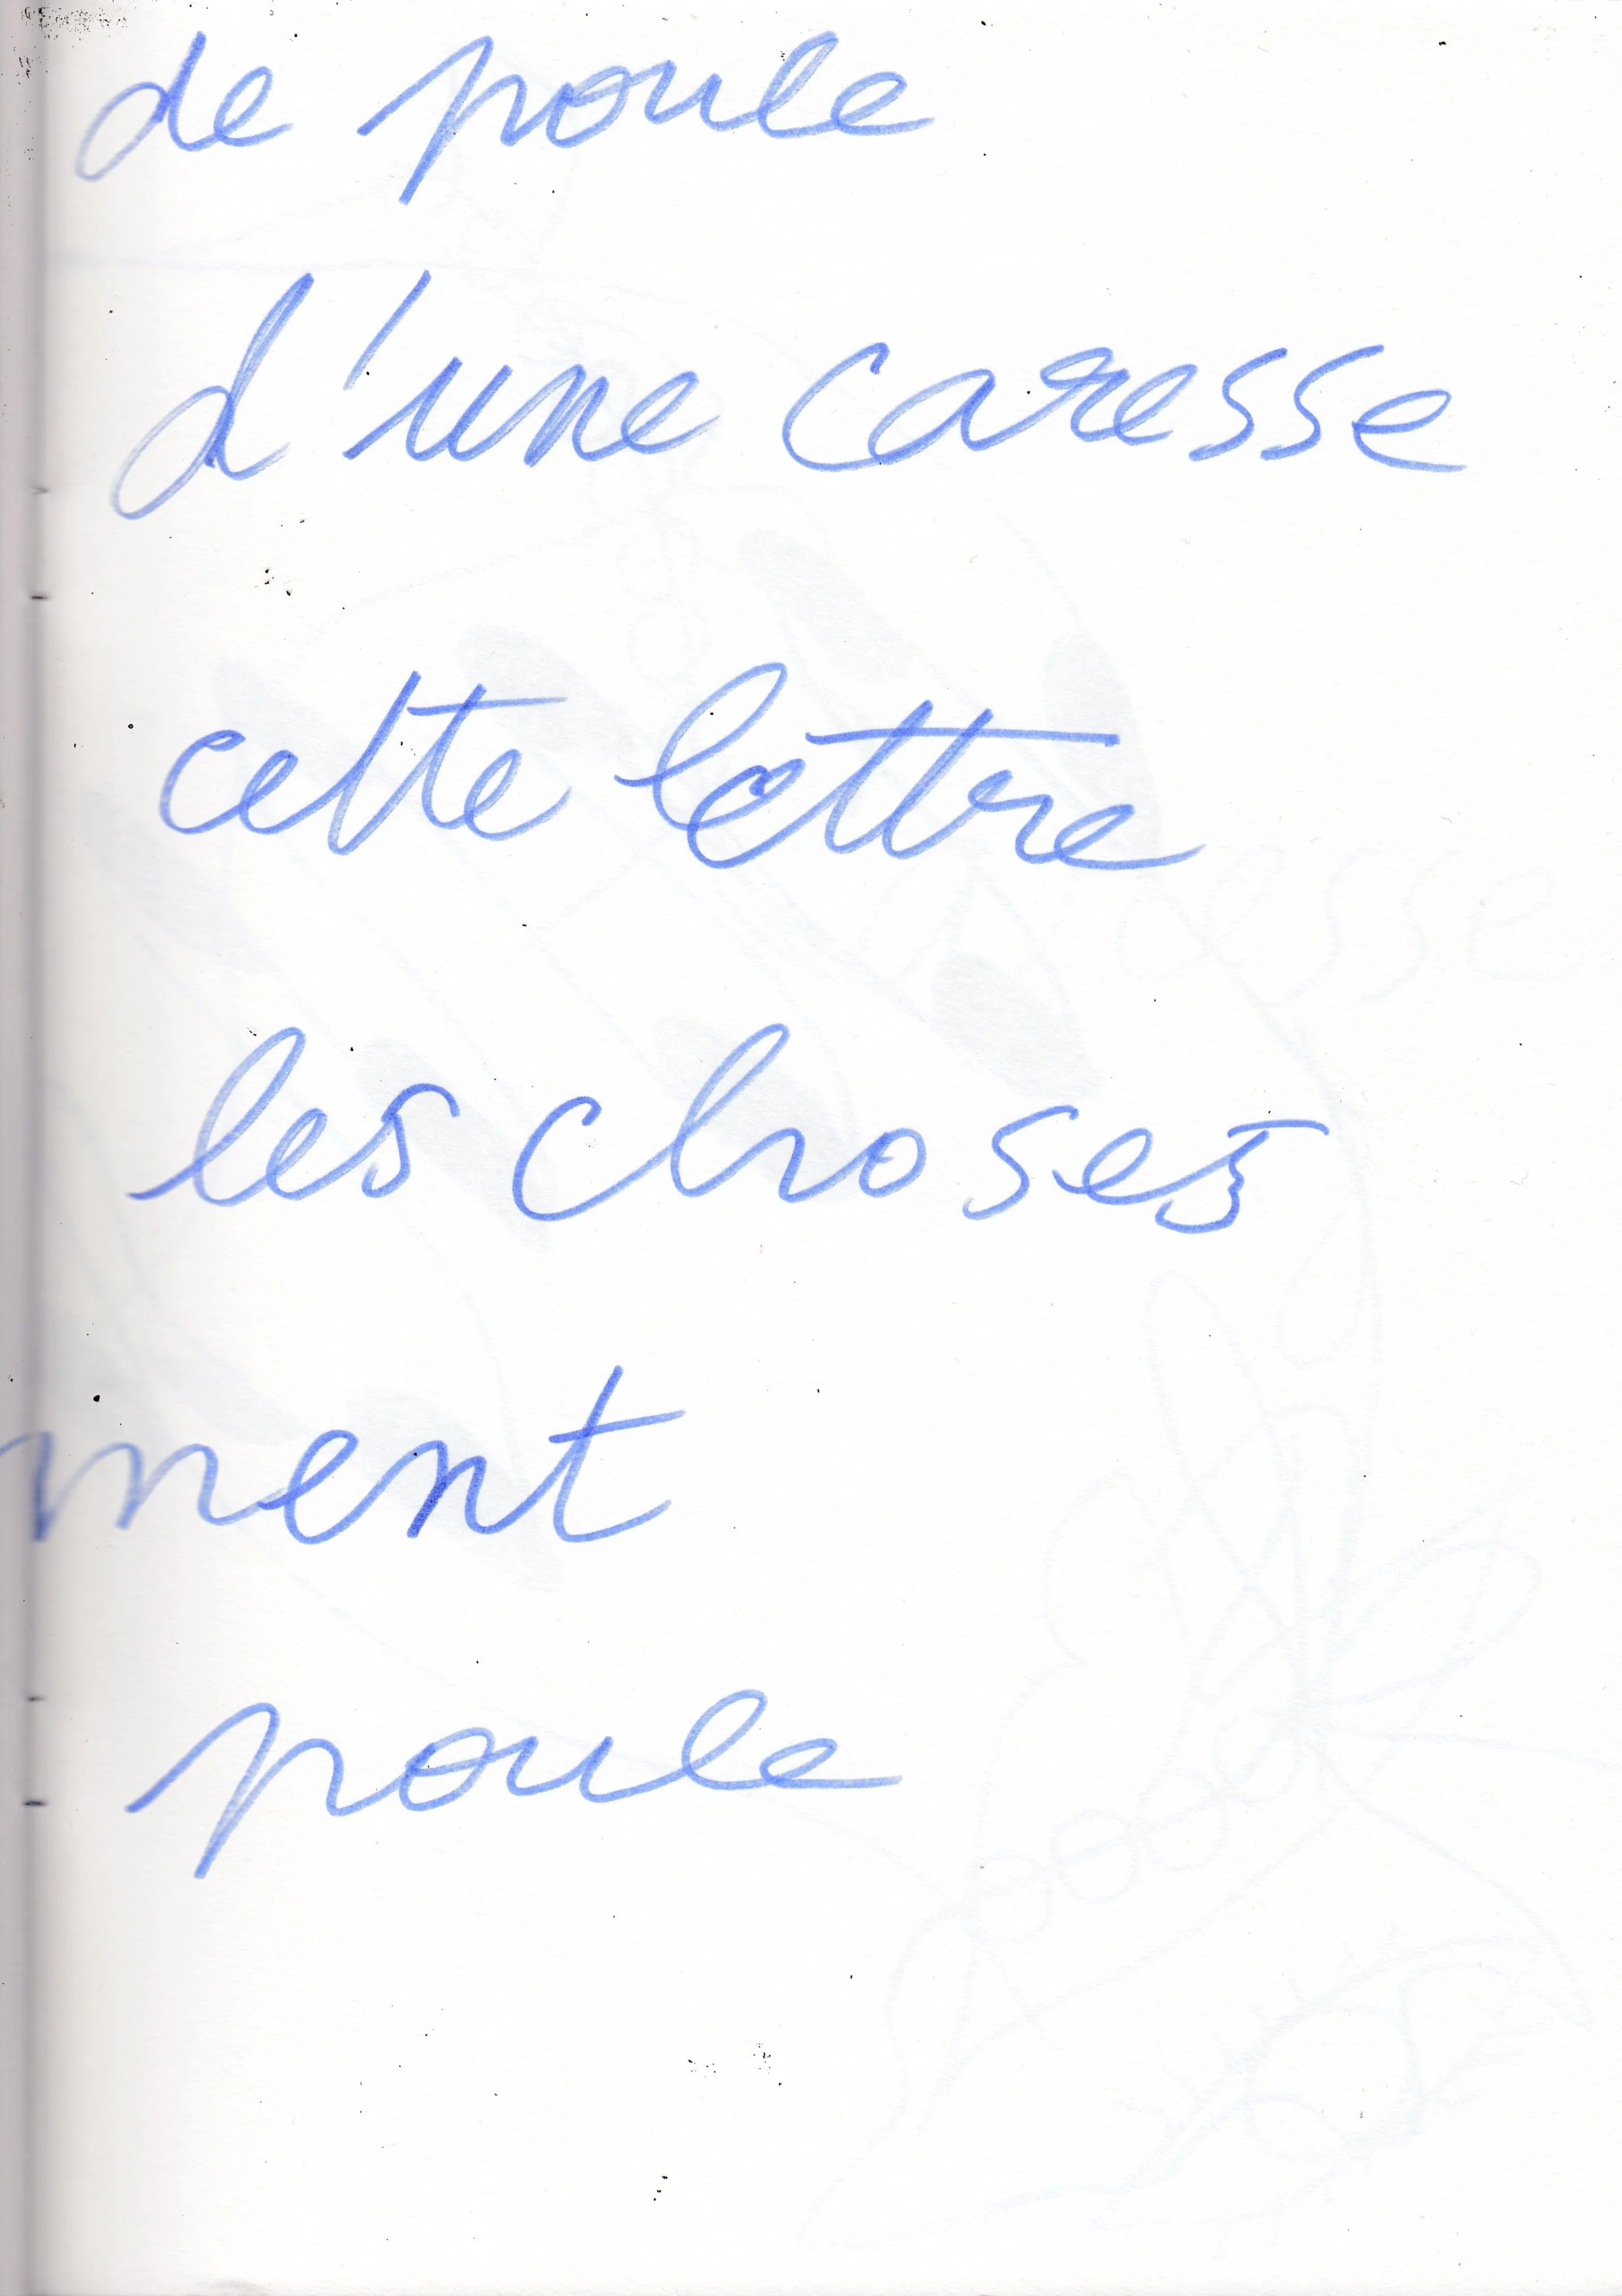 de poule
d'une caresse
cette lettre
les choses
ment
poule